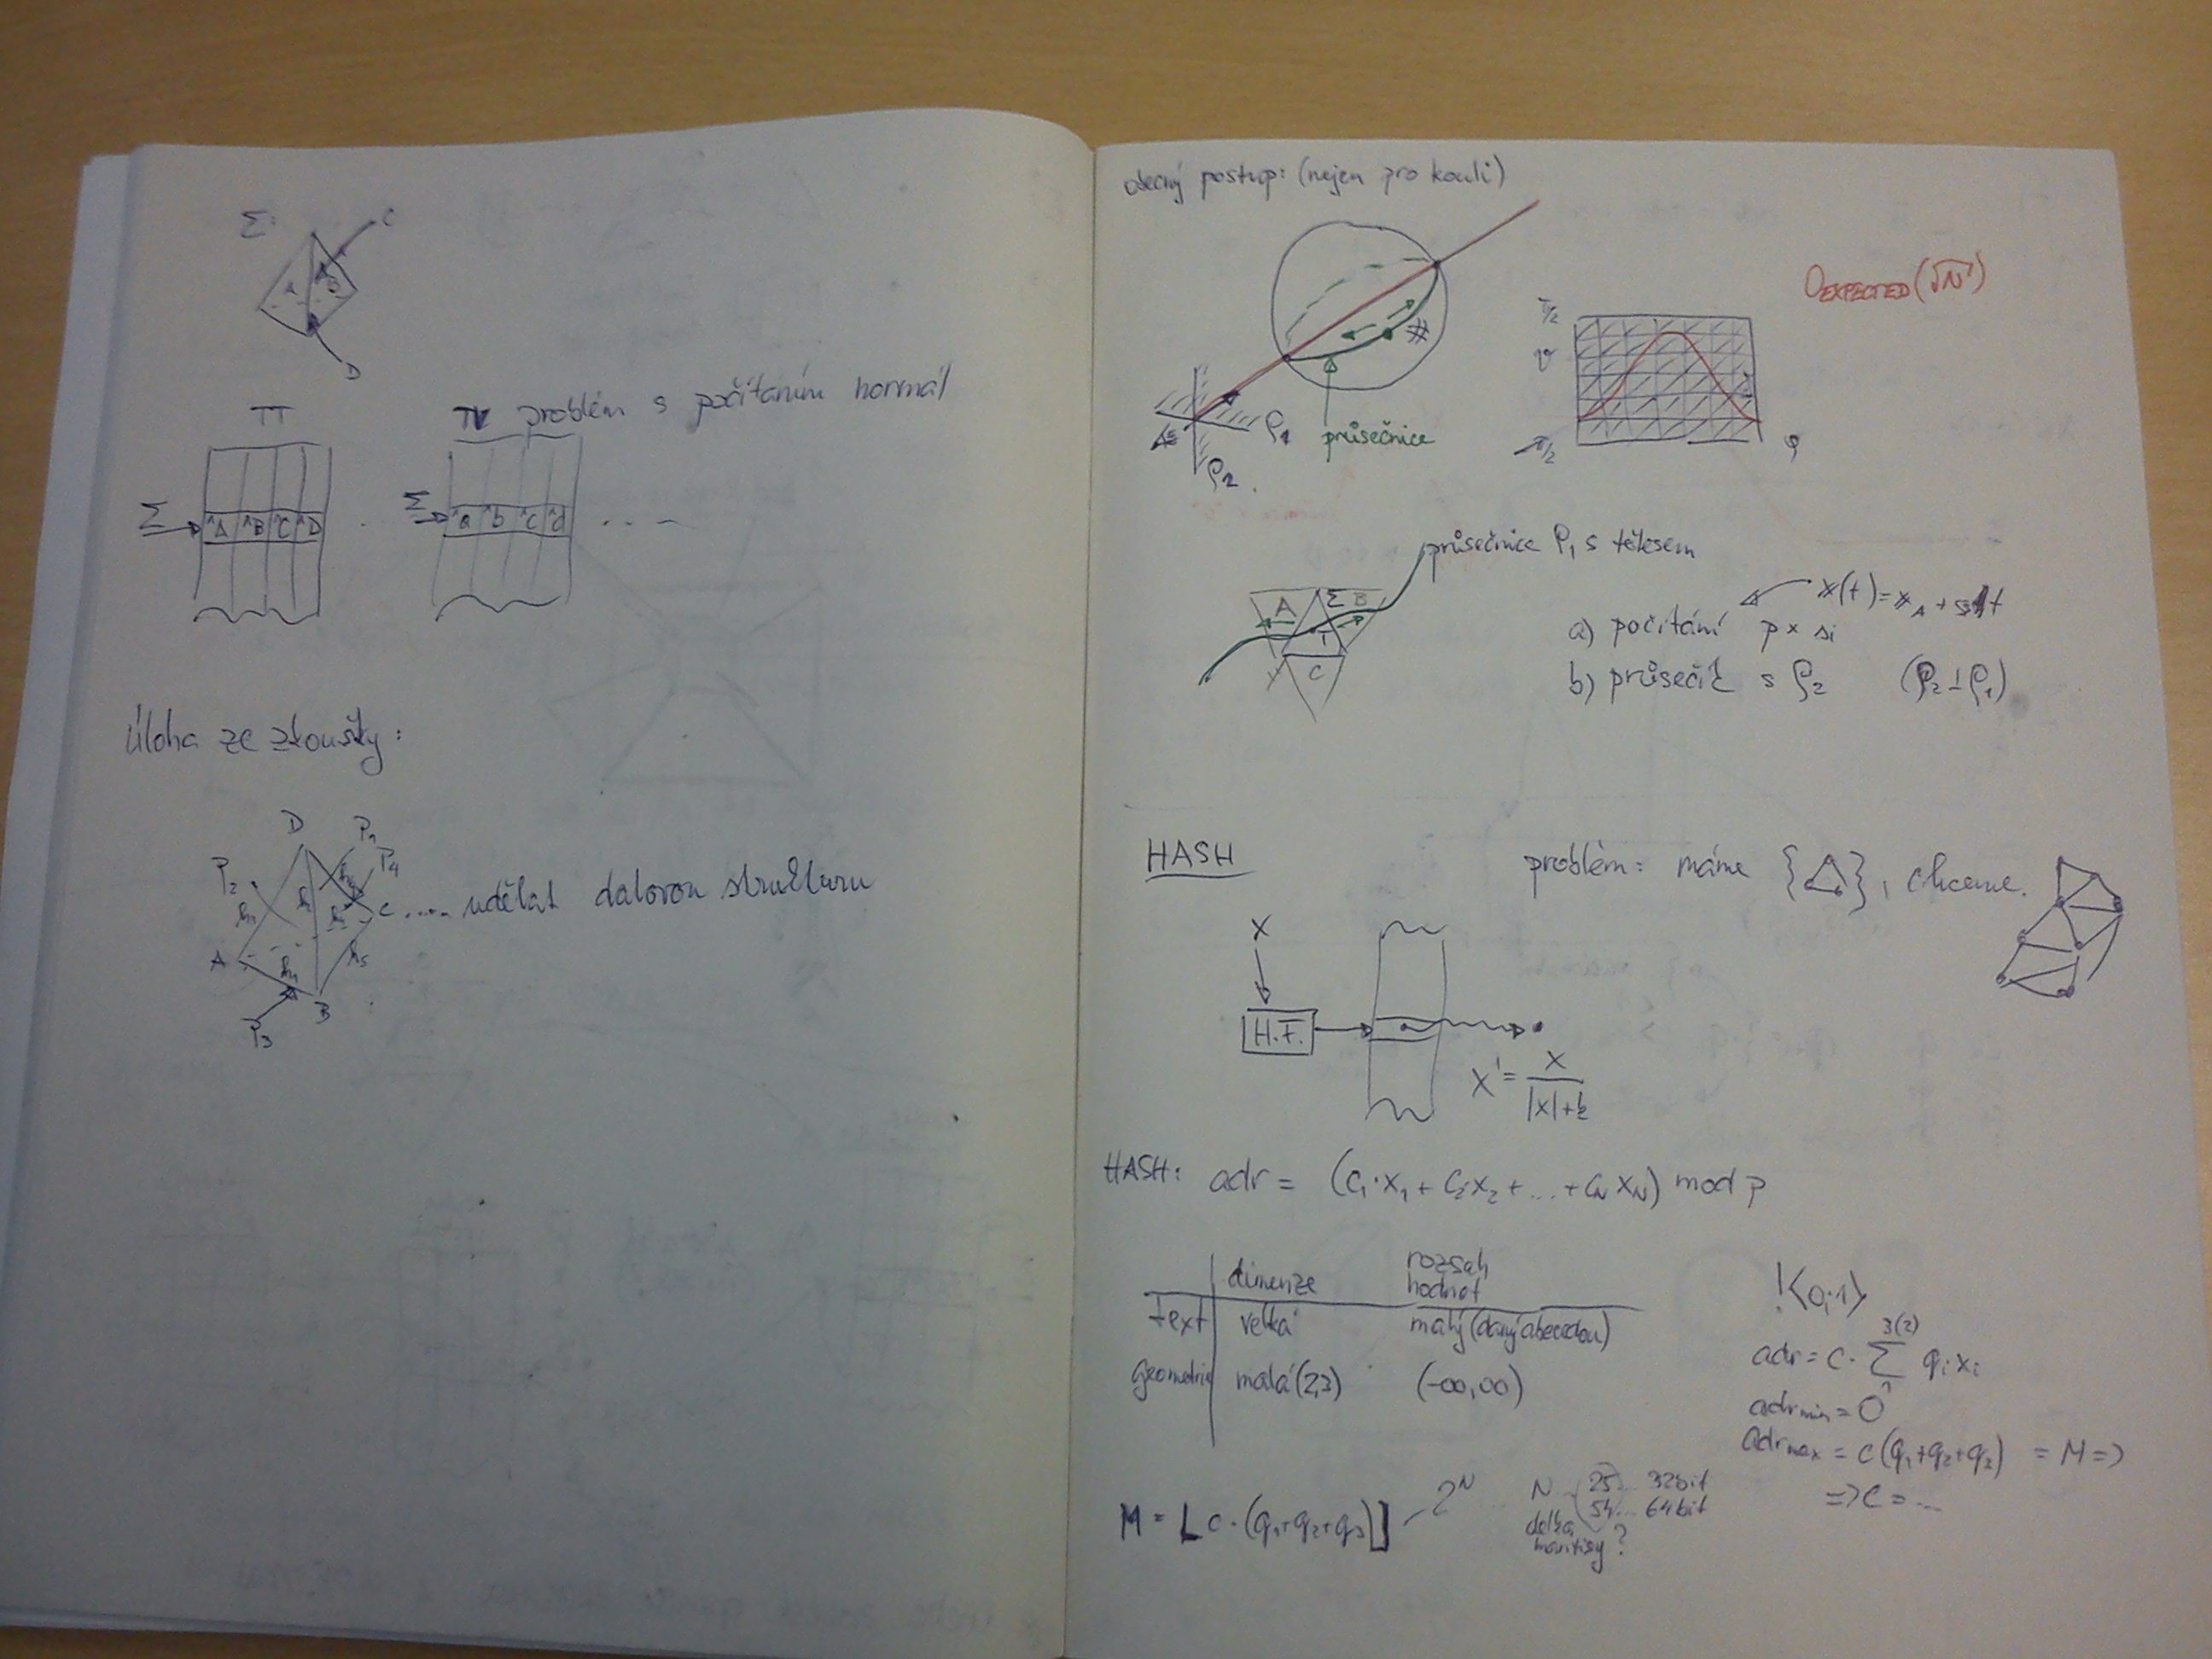 Σ:
C
D
Π
problém s počítáním normál
Σ
A B C D
Σ
a b c d
...
Úloha ze zkoušky:
D P₁
P₂ P₄
C .... udělat datovou strukturu
A
B
P₃
obecný postup: (nejen pro kouli)
O_EXPECTED(√N)
π/2
ϑ
-π/2
φ
#
ρ₁ průsečnice
ρ₂
průsečnice ρ₁ s tělesem
A Σ B
T
C
x(t) = x_A + s t
a) počítání p × si
b) průsečík s ρ₂ (ρ₂ ⊥ ρ₁)
HASH
problém: máme {△}, chceme
X
H.F.
x' = x / (|x|+k)
HASH: adr = (C₁·x₁ + C₂·x₂ + ... + C_N x_N) mod p
dimenze rozsah hodnot
text velká malý (daný abecedou)
geometrie malá (2,3) (-∞,∞)
! <0;1>
adr = C · Σ 3(2) 1 qᵢ xᵢ
adr min = 0
adr max = C (q₁+q₂+q₃) = M =>
=> C = ...
M = ⌊C · (q₁+q₂+q₃)⌋ - 2^N
N 25... 32bit
54... 64bit
délka mantisy ?